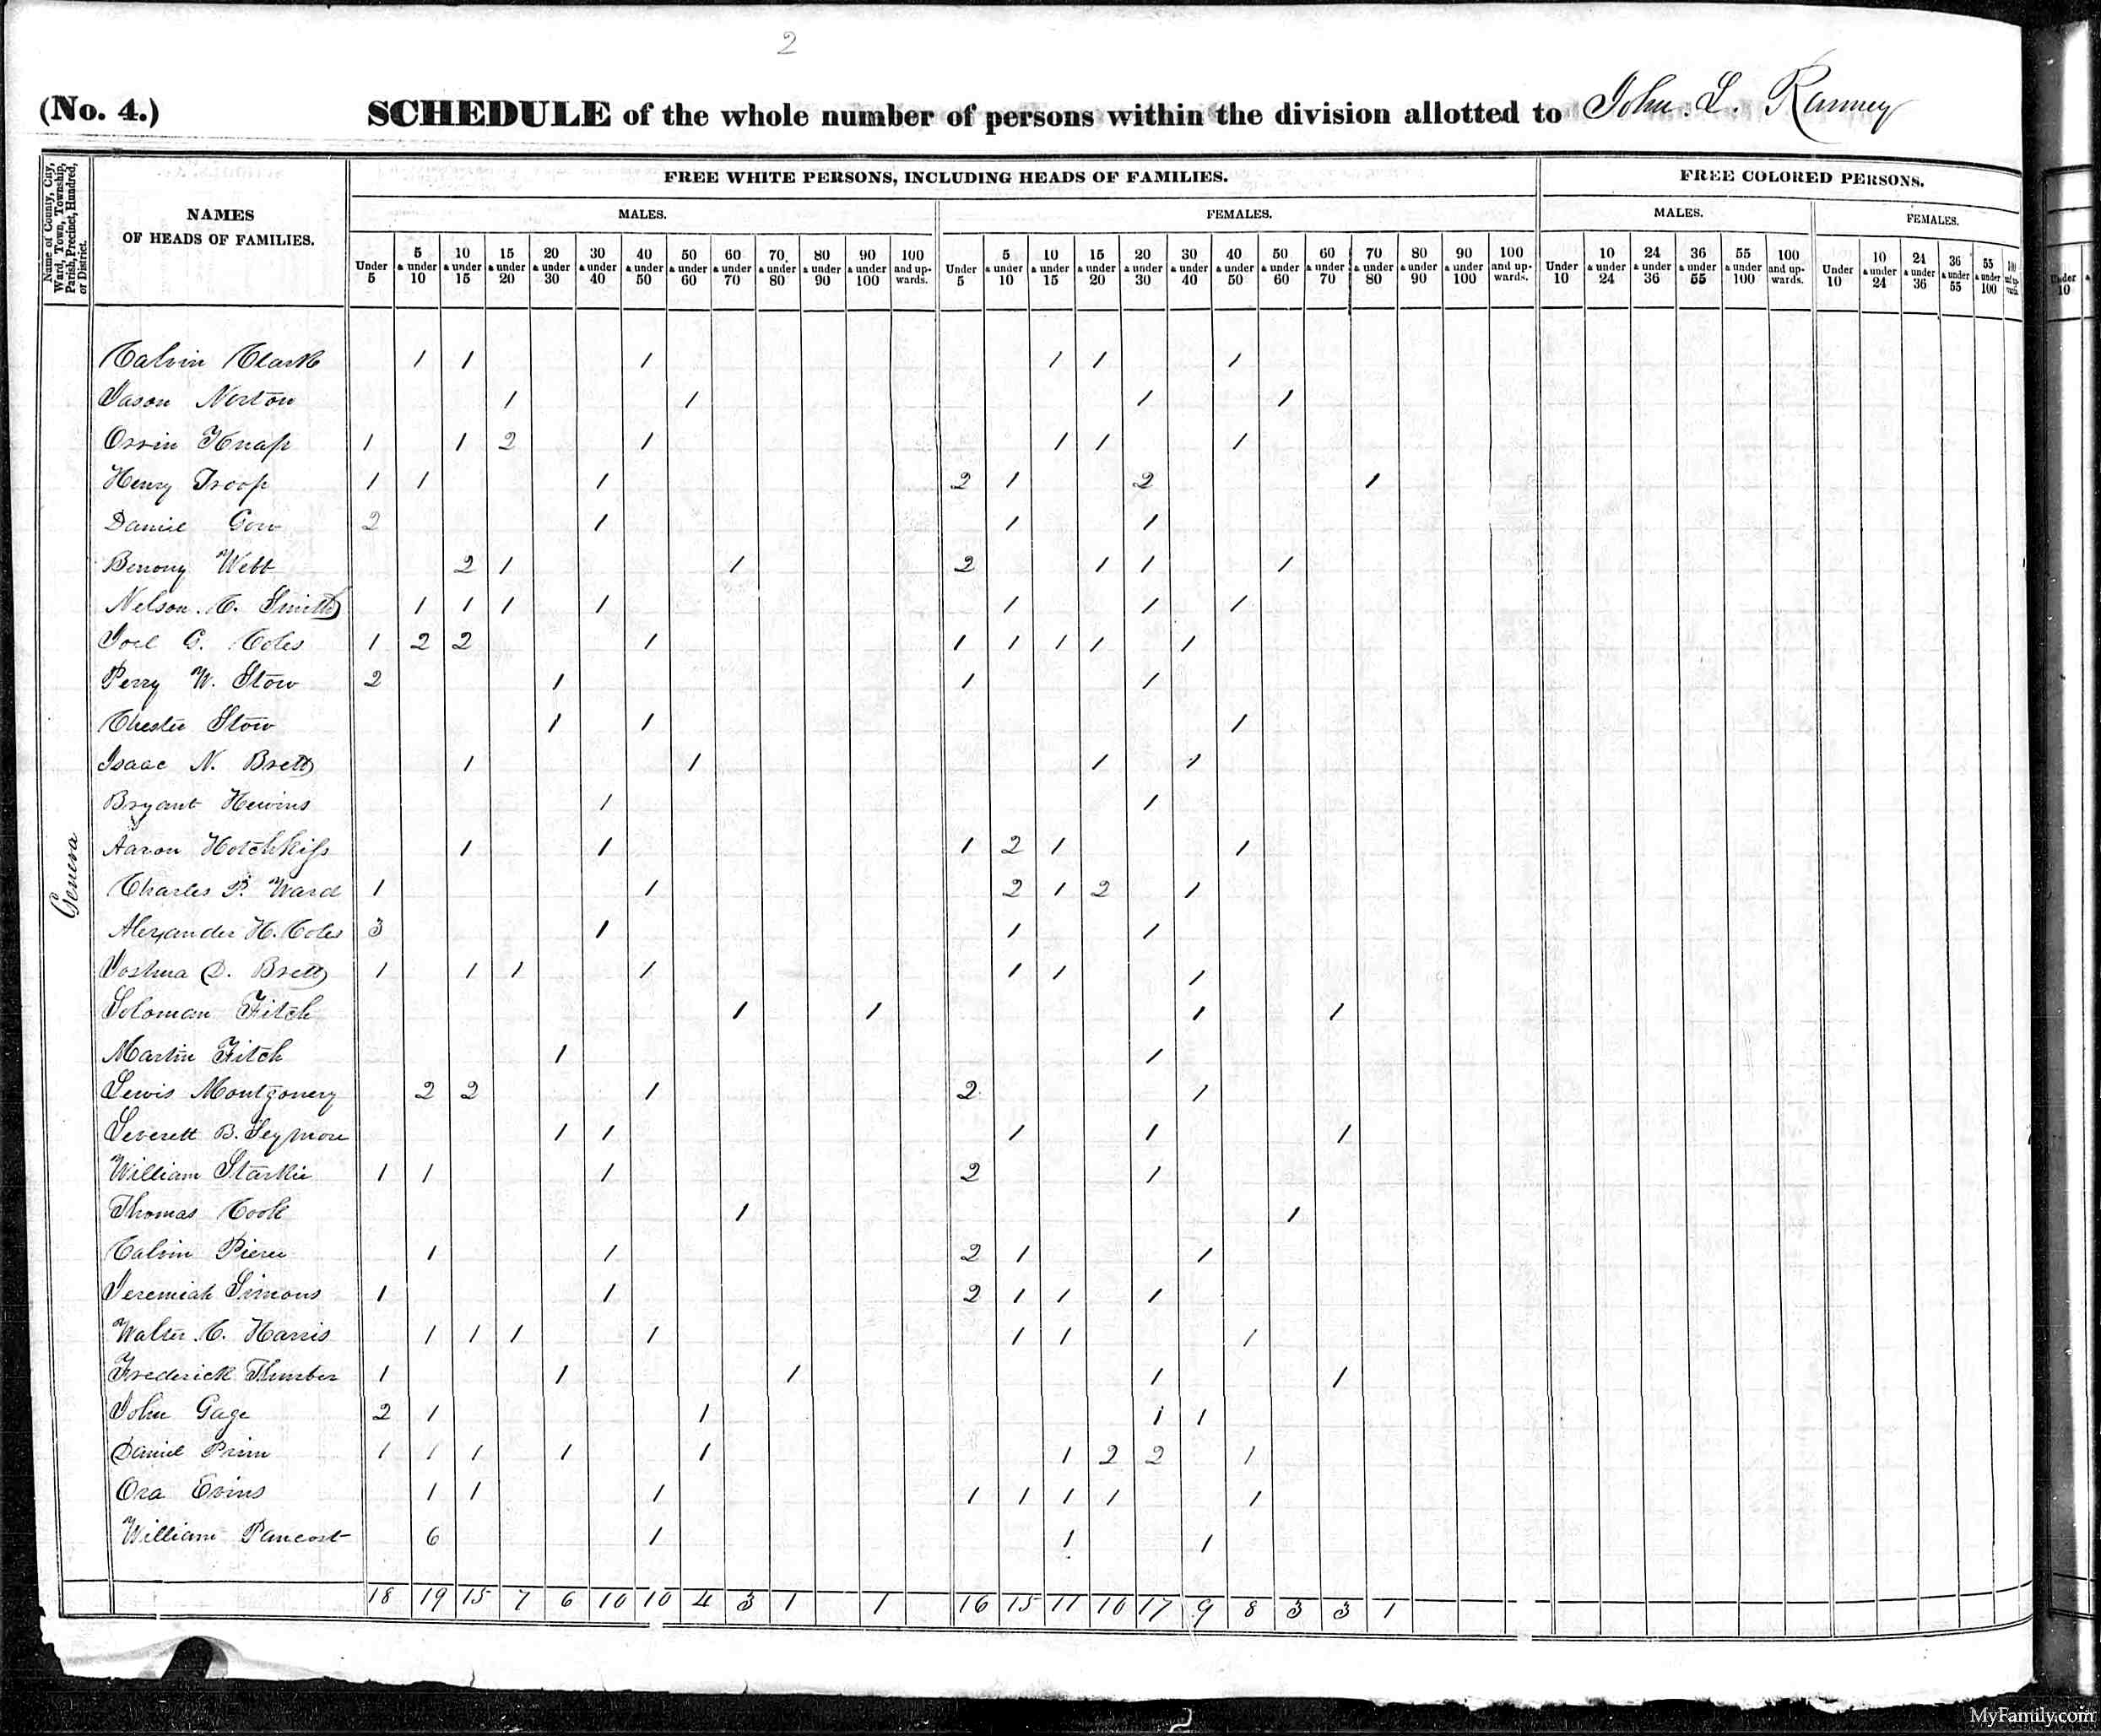 2
(No. 4.) SCHEDULE of the whole number of persons within the division allotted to John. L. Ranney
Name of County, City, Ward, Town, Township, Parish, Precinct, Hundred, or District.
NAMES OF HEADS OF FAMILIES.
FREE WHITE PERSONS, INCLUDING HEADS OF FAMILIES.
FREE COLORED PERSONS.
MALES. FEMALES. MALES. FEMALES.
Under 5 5 & under 10 10 & under 15 15 & under 20 20 & under 30 30 & under 40 40 & under 50 50 & under 60 60 & under 70 70 & under 80 80 & under 90 90 & under 100 100 and upwards. Under 5 5 & under 10 10 & under 15 15 & under 20 20 & under 30 30 & under 40 40 & under 50 50 & under 60 60 & under 70 70 & under 80 80 & under 90 90 & under 100 100 and upwards. Under 10 10 & under 24 24 & under 36 36 & under 55 55 & under 100 100 and upwards. Under 10 10 & under 24 24 & under 36 36 & under 55 55 & under 100 100 and upwards. Under 10
Geneva
Calvin Clark 1 1 1 1 1 1
Jason Norton 1 1 1 1
Orrin Knap 1 1 2 1 1 1 1
Henry Troop 1 1 1 2 1 2 1
Daniel Gow 2 1 1 1
Benony Webb 2 1 1 2 1 1 1
Nelson. C. Smith 1 1 1 1 1 1 1
Joel G. Coles 1 2 2 1 1 1 1 1 1
Perry W. Stow 2 1 1 1
Chester Stow 1 1 1
Isaac N. Brett 1 1 1 1
Bryant Hewins 1 1
Aaron Hotchkiss 1 1 1 2 1 1
Charles P. Ward 1 1 2 1 2 1
Alexander H. Coles 3 1 1 1
Joshua D. Brett 1 1 1 1 1 1 1
Soloman Fitch 1 1 1 1
Martin Fitch 1 1
Lewis Montgomery 2 2 1 2 1
Leverett B. Seymore 1 1 1 1 1
William Starkie 1 1 1 2 1
Thomas Cook 1 1
Calvin Pierce 1 1 2 1 1
Jeremiah Simons 1 1 2 1 1 1
Walter C. Harris 1 1 1 1 1 1 1
Frederick Thurber 1 1 1 1 1
John Gage 2 1 1 1 1
Daniel Prim 1 1 1 1 1 1 2 2 1
Ora Evins 1 1 1 1 1 1 1 1
William Pancost 6 1 1 1
18 19 15 7 6 10 10 4 3 1 1 16 15 11 10 17 9 8 3 3 1
2
MyFamily.com